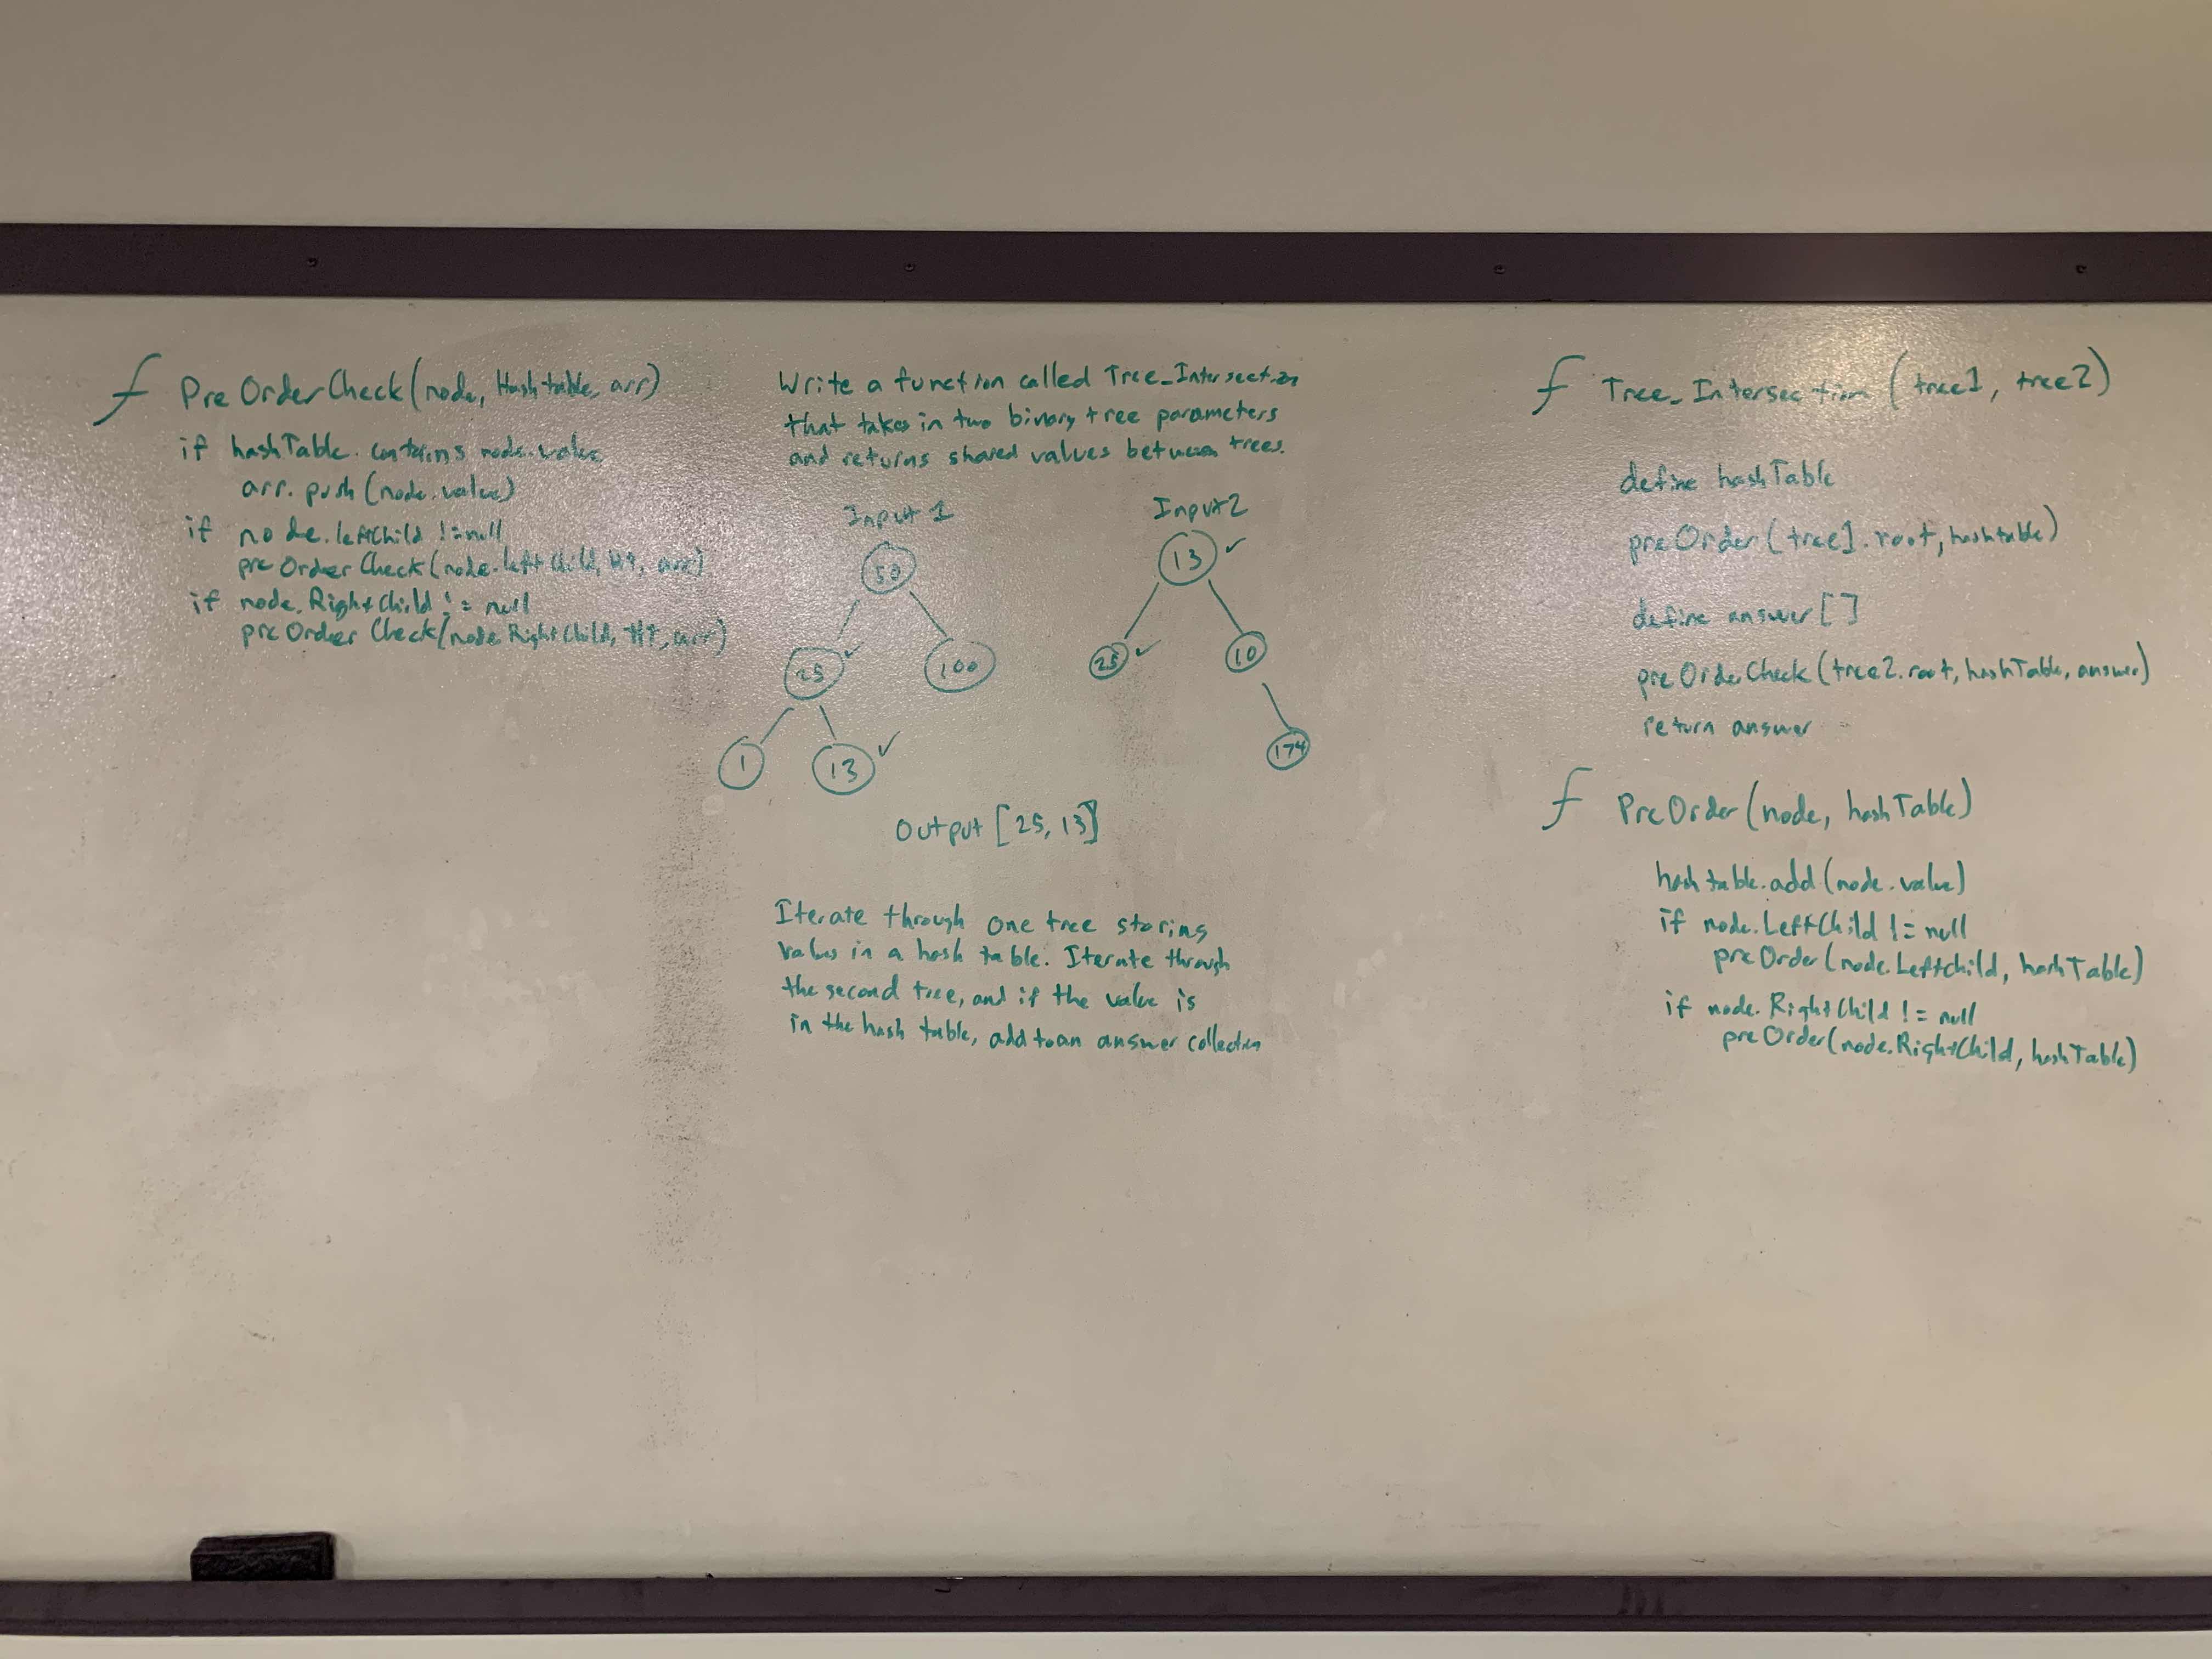 f PreOrderCheck(node, Hashtable, arr)
if hashTable.contains node.value
arr.push(node.value)
if node.leftChild != null
preOrderCheck(node.leftChild, HT, arr)
if node.RightChild != null
preOrderCheck(node.RightChild, HT, arr)
Write a function called Tree_Intersection
that takes in two binary tree parameters
and returns shared values between trees.
Input 1
50
25 ✓
100
1
13 ✓
Input2
13 ✓
25 ✓
10
174
Output [25, 13]
Iterate through one tree storing
values in a hash table. Iterate through
the second tree, and if the value is
in the hash table, add to an answer collection
f Tree_Intersection (tree1, tree2)
define hashTable
preOrder(tree1.root, hashtable)
define answer []
preOrderCheck(tree2.root, hashTable, answer)
return answer
f PreOrder(node, hashTable)
hashtable.add(node.value)
if node.LeftChild != null
preOrder(node.LeftChild, hashTable)
if node.RightChild != null
preOrder(node.RightChild, hashTable)